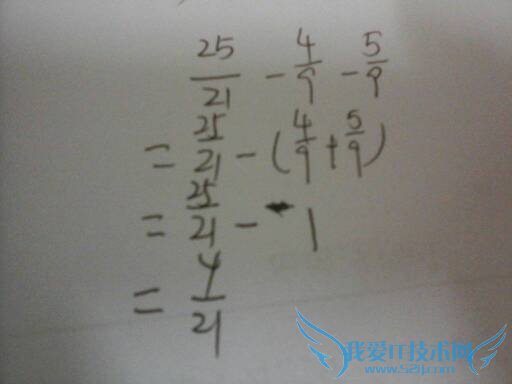 25/21 - 4/9 - 5/9
= 25/21 - (4/9 + 5/9)
= 25/21 - 1
= 4/21
我爱IT技术网
www.52ij.com